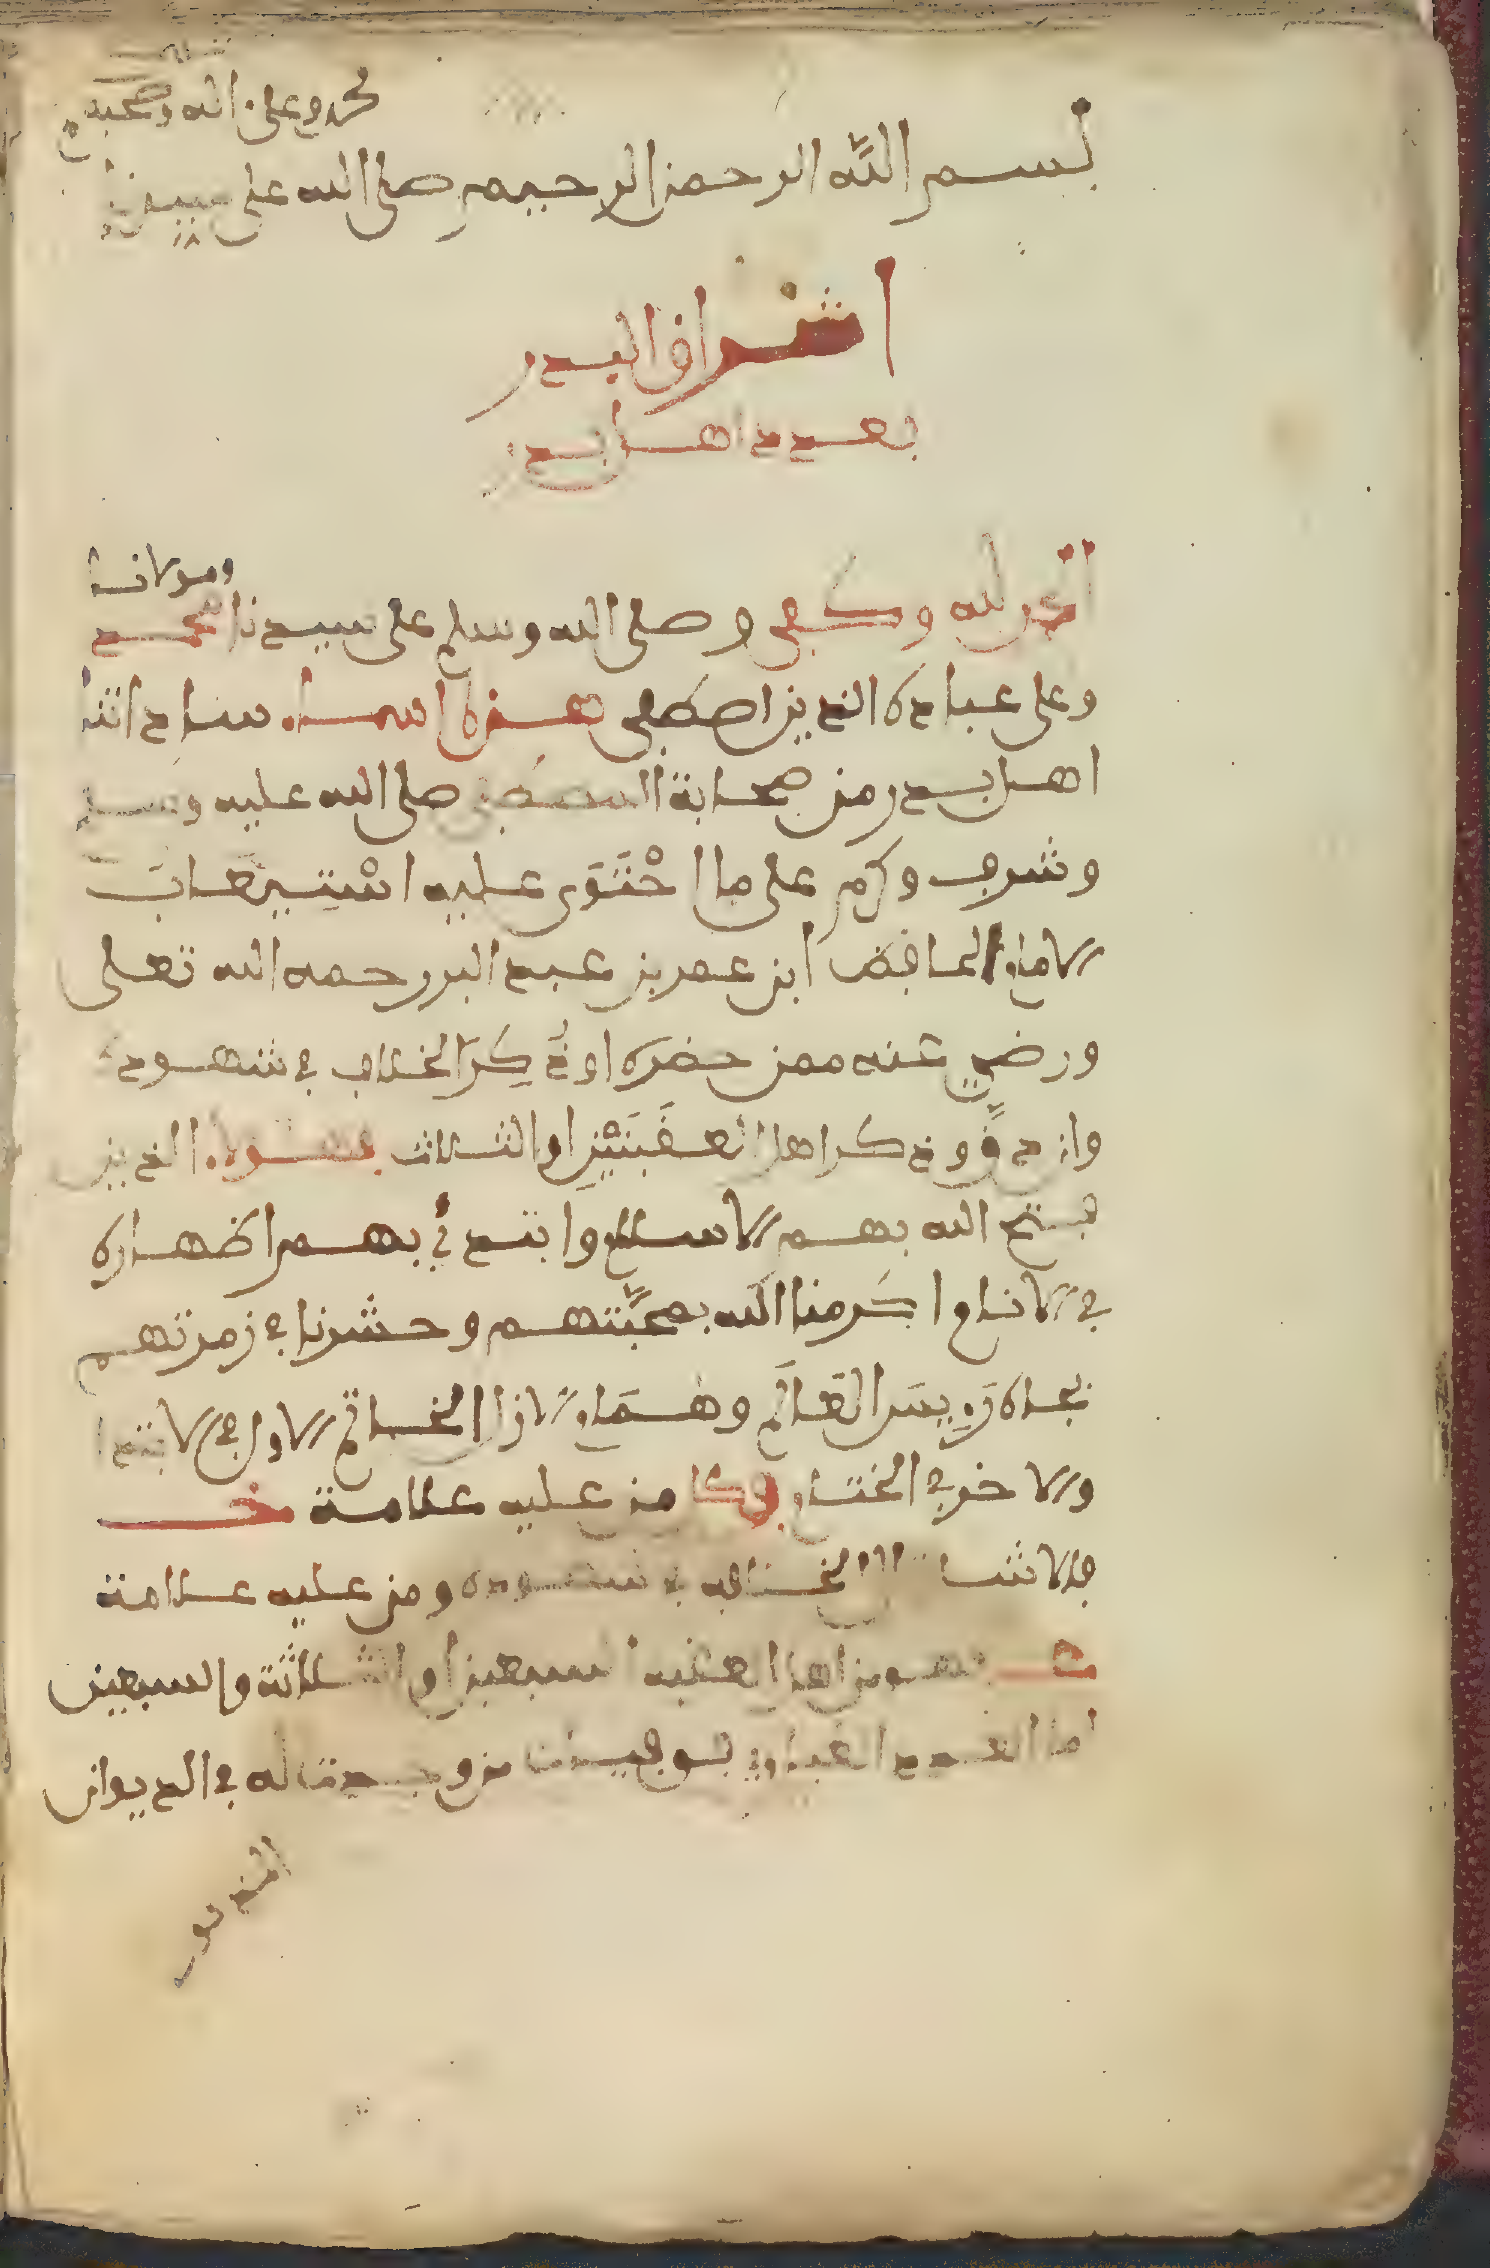 بسم الله الرحمن الرحيم صلى الله على سيدنا
محمد وعلى اله وصحبه
اشراق البدر
بعدد اهل بدر
الحمد لله وكفى وصلى الله وسلم على سيدنا ومولانا محمد
وعلى عباده الذين اصطفى هذه اسماء ساداتنا
اهل بدر من صحابة المصطفى صلى الله عليه وسلم
وشرف وكرم على ما احْتَوَى عليه اسْتِيعاب
الامام الحافظ ابن عمر بن عبد البر رحمه الله تعلى
ورضي عنه ممن حضره او ذُكِرَ الخلاف في شهوده
وان دَّ وذكر اهل العقبَتَيْنِ او الثلاث هؤلاء الذين
فتح الله بهم الاسلام وابتدئ بهم اظهاره
في الانام اكرمنا الله بمحبَّتهم وحشرنا في زمرتهم
بجاه رَءِيسَى العَالَم وهُمَا الخاتم الاول في الابتدا
والاخر في الختام فكل من عليه علامة خـ
فللاشا الخلاف في شهوده ومن عليه علامة
فهو من اهل العقبة السبعين او الثلاثة والسبعين
اما العدد الغباري فوفيات من وجدت له في الديوان
المذكور